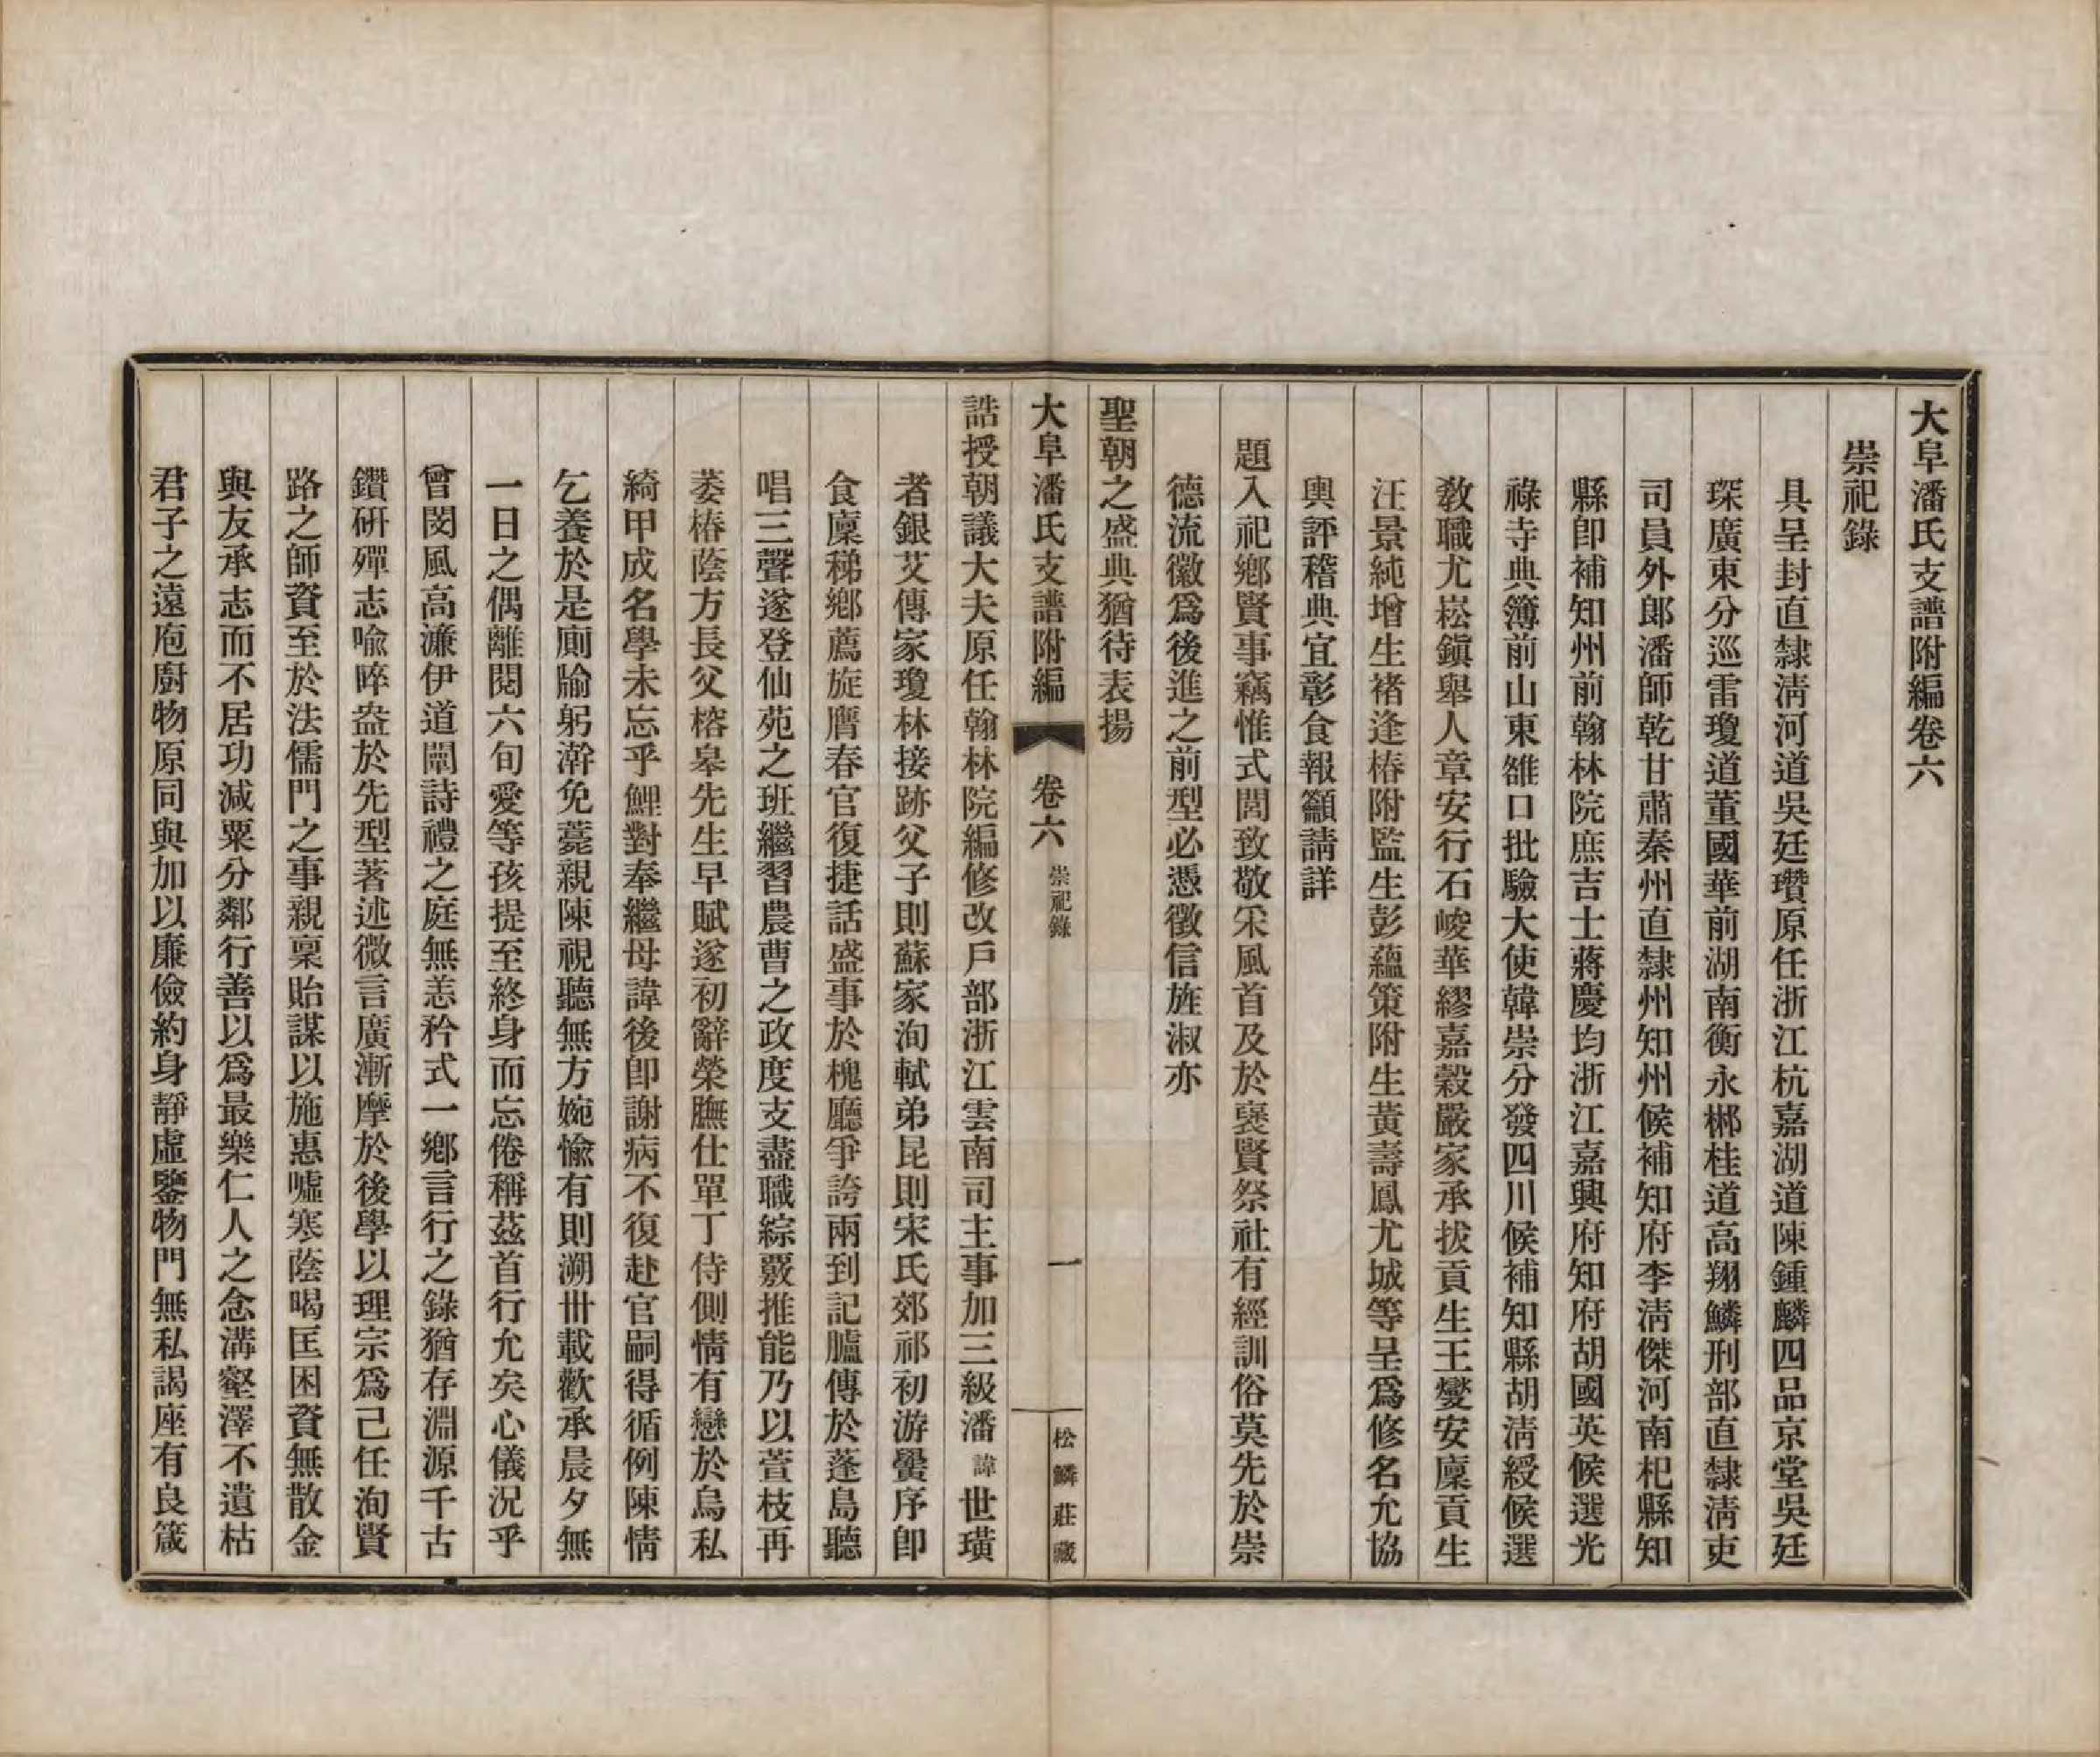 大阜潘氏支譜附編卷六
崇祀錄
具呈封直隸淸河道吳廷瓚原任浙江杭嘉湖道陳鍾麟四品京堂吳廷
琛廣東分巡雷瓊道董國華前湖南衡永郴桂道高翔麟刑部直隸淸吏
司員外郞潘師乾甘肅秦州直隸州知州候補知府李淸傑河南杞縣知
縣卽補知州前翰林院庶吉士蔣慶均浙江嘉興府知府胡國英候選光
祿寺典簿前山東雒口批驗大使韓崇分發四川候補知縣胡淸綬候選
敎職尤崧鎭舉人章安行石峻華繆嘉穀嚴家承拔貢生王燮安廩貢生
汪景純增生褚逢椿附監生彭蘊策附生黃壽鳳尤城等呈爲修名允協
輿評稽典宜彰食報籲請詳
題入祀鄕賢事竊惟式閭致敬采風首及於襃賢祭社有經訓俗莫先於崇
德流徽爲後進之前型必憑徵信旌淑亦
聖朝之盛典猶待表揚
大阜潘氏支譜附編 卷六 崇祀錄 一 松鱗莊藏
誥授朝議大夫原任翰林院編修改戶部浙江雲南司主事加三級潘諱世璜
者銀艾傳家瓊林接跡父子則蘇家洵軾弟昆則宋氏郊祁初游黌序卽
食廩稊鄕薦旋膺春官復捷話盛事於槐廳爭誇兩到記臚傳於蓬島聽
唱三聲遂登仙苑之班繼習農曹之政度支盡職綜覈推能乃以萱枝再
萎椿蔭方長父榕皋先生早賦遂初辭榮膴仕單丁侍側情有戀於烏私
綺甲成名學未忘乎鯉對奉繼母諱後卽謝病不復赴官嗣得循例陳情
乞養於是廁牏躬澣免薧親陳視聽無方婉愉有則溯卅載歡承晨夕無
一日之偶離閱六旬愛等孩提至終身而忘倦稱茲首行允矣心儀況乎
曾閔風高濂伊道闡詩禮之庭無恙矜式一鄕言行之錄猶存淵源千古
鑽研殫志喩睟盎於先型著述微言廣漸摩於後學以理宗爲己任洵賢
路之師資至於法儒門之事親稟貽謀以施惠噓寒蔭暍匡困資無散金
與友承志而不居功減粟分鄰行善以爲最樂仁人之念溝壑澤不遺枯
君子之遠庖廚物原同與加以廉儉約身靜虛鑒物門無私謁座有良箴